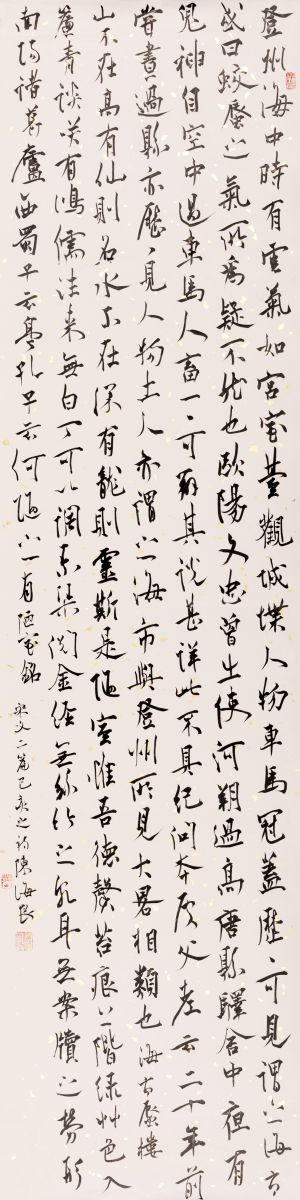 登州海中時有雲氣如宮室臺觀城堞人物車馬冠蓋歷〻可見謂之海市
或曰蛟蜃之氣所為疑不然也歐陽文忠曾出使河朔過高唐縣驛舍中夜有
鬼神自空中過車馬人畜一〻可辨其說甚詳此不具紀問本處父老云二十年前
嘗晝過縣亦歷〻見人物土人亦謂之海市與登州所見大畧相類也 海市蜃樓
山不在高有仙則名水不在深有龍則靈斯是陋室惟吾德馨苔痕上階綠艸色入
簾青談笑有鴻儒往來無白丁可以調素琴閱金經無絲竹之亂耳無案牘之勞形
南陽諸葛廬西蜀子云亭孔子云何陋之有 陋室銘
文二篇己亥之初陳海良